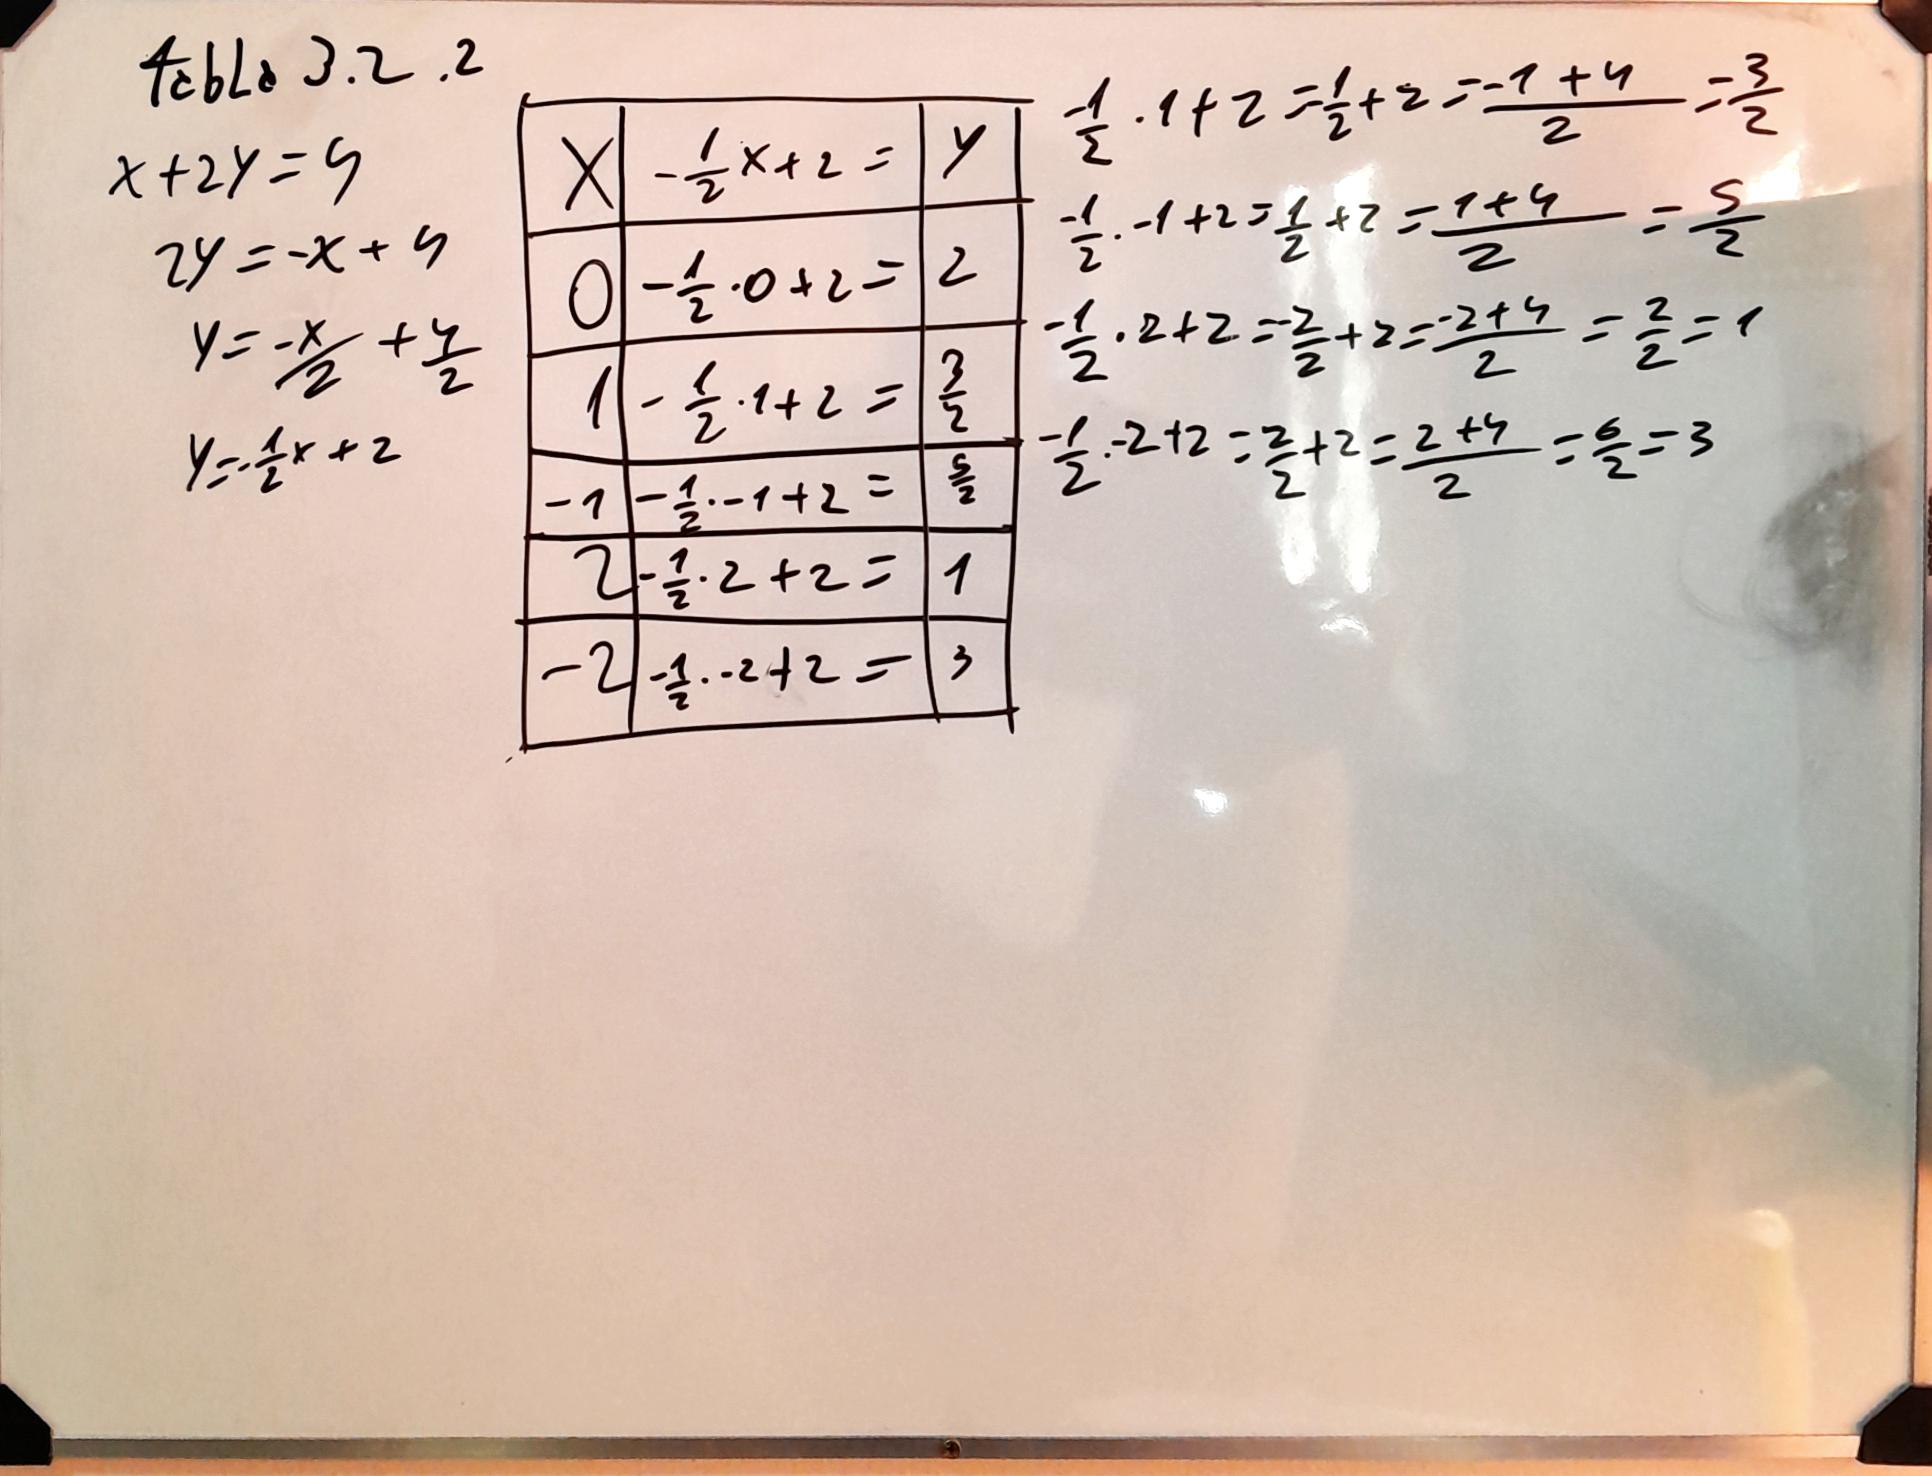 tabla 3.2.2
x+2y=4
2y=-x+4
y=-x/2+4/2
y=-1/2x+2
X | -1/2x+2= | y
0 | -1/2·0+2= | 2
1 | -1/2·1+2= | 3/2
-1 | -1/2·-1+2= | 5/2
2 | -1/2·2+2= | 1
-2 | -1/2·-2+2= | 3
-1/2·1+2=-1/2+2=-1+4/2=3/2
-1/2·-1+2=1/2+2=1+4/2=5/2
-1/2·2+2=-2/2+2=-2+4/2=2/2=1
-1/2·-2+2=2/2+2=2+4/2=6/2=3